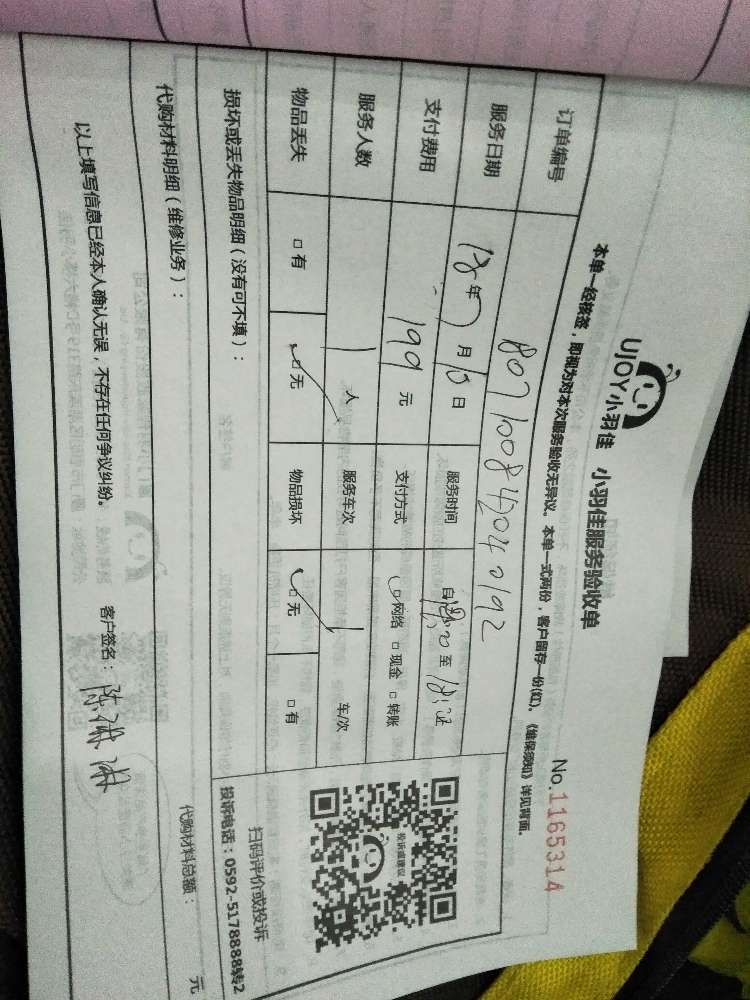 UJOY小羽佳 小羽佳服务验收单
No.1165314
本单一经核签，即视为对本次服务验收无异议。本单一式两份，客户留存一份(红)。《维保须知》详见背面。
订单编号 807100842040192
服务日期 18年7月10日 服务时间 自 至
支付费用 199元 支付方式 网络 现金 转账
服务人数 1人 服务车次 1车/次
物品丢失 有 无 物品损坏 无 有
损坏或丢失物品明细（没有可不填）：
扫码评价或投诉
投诉电话：0592-5178888转2
投诉或建议
代购材料明细（维修业务）：
代购材料总额： 元
以上填写信息已经本人确认无误，不存在任何争议纠纷。
客户签名：陈